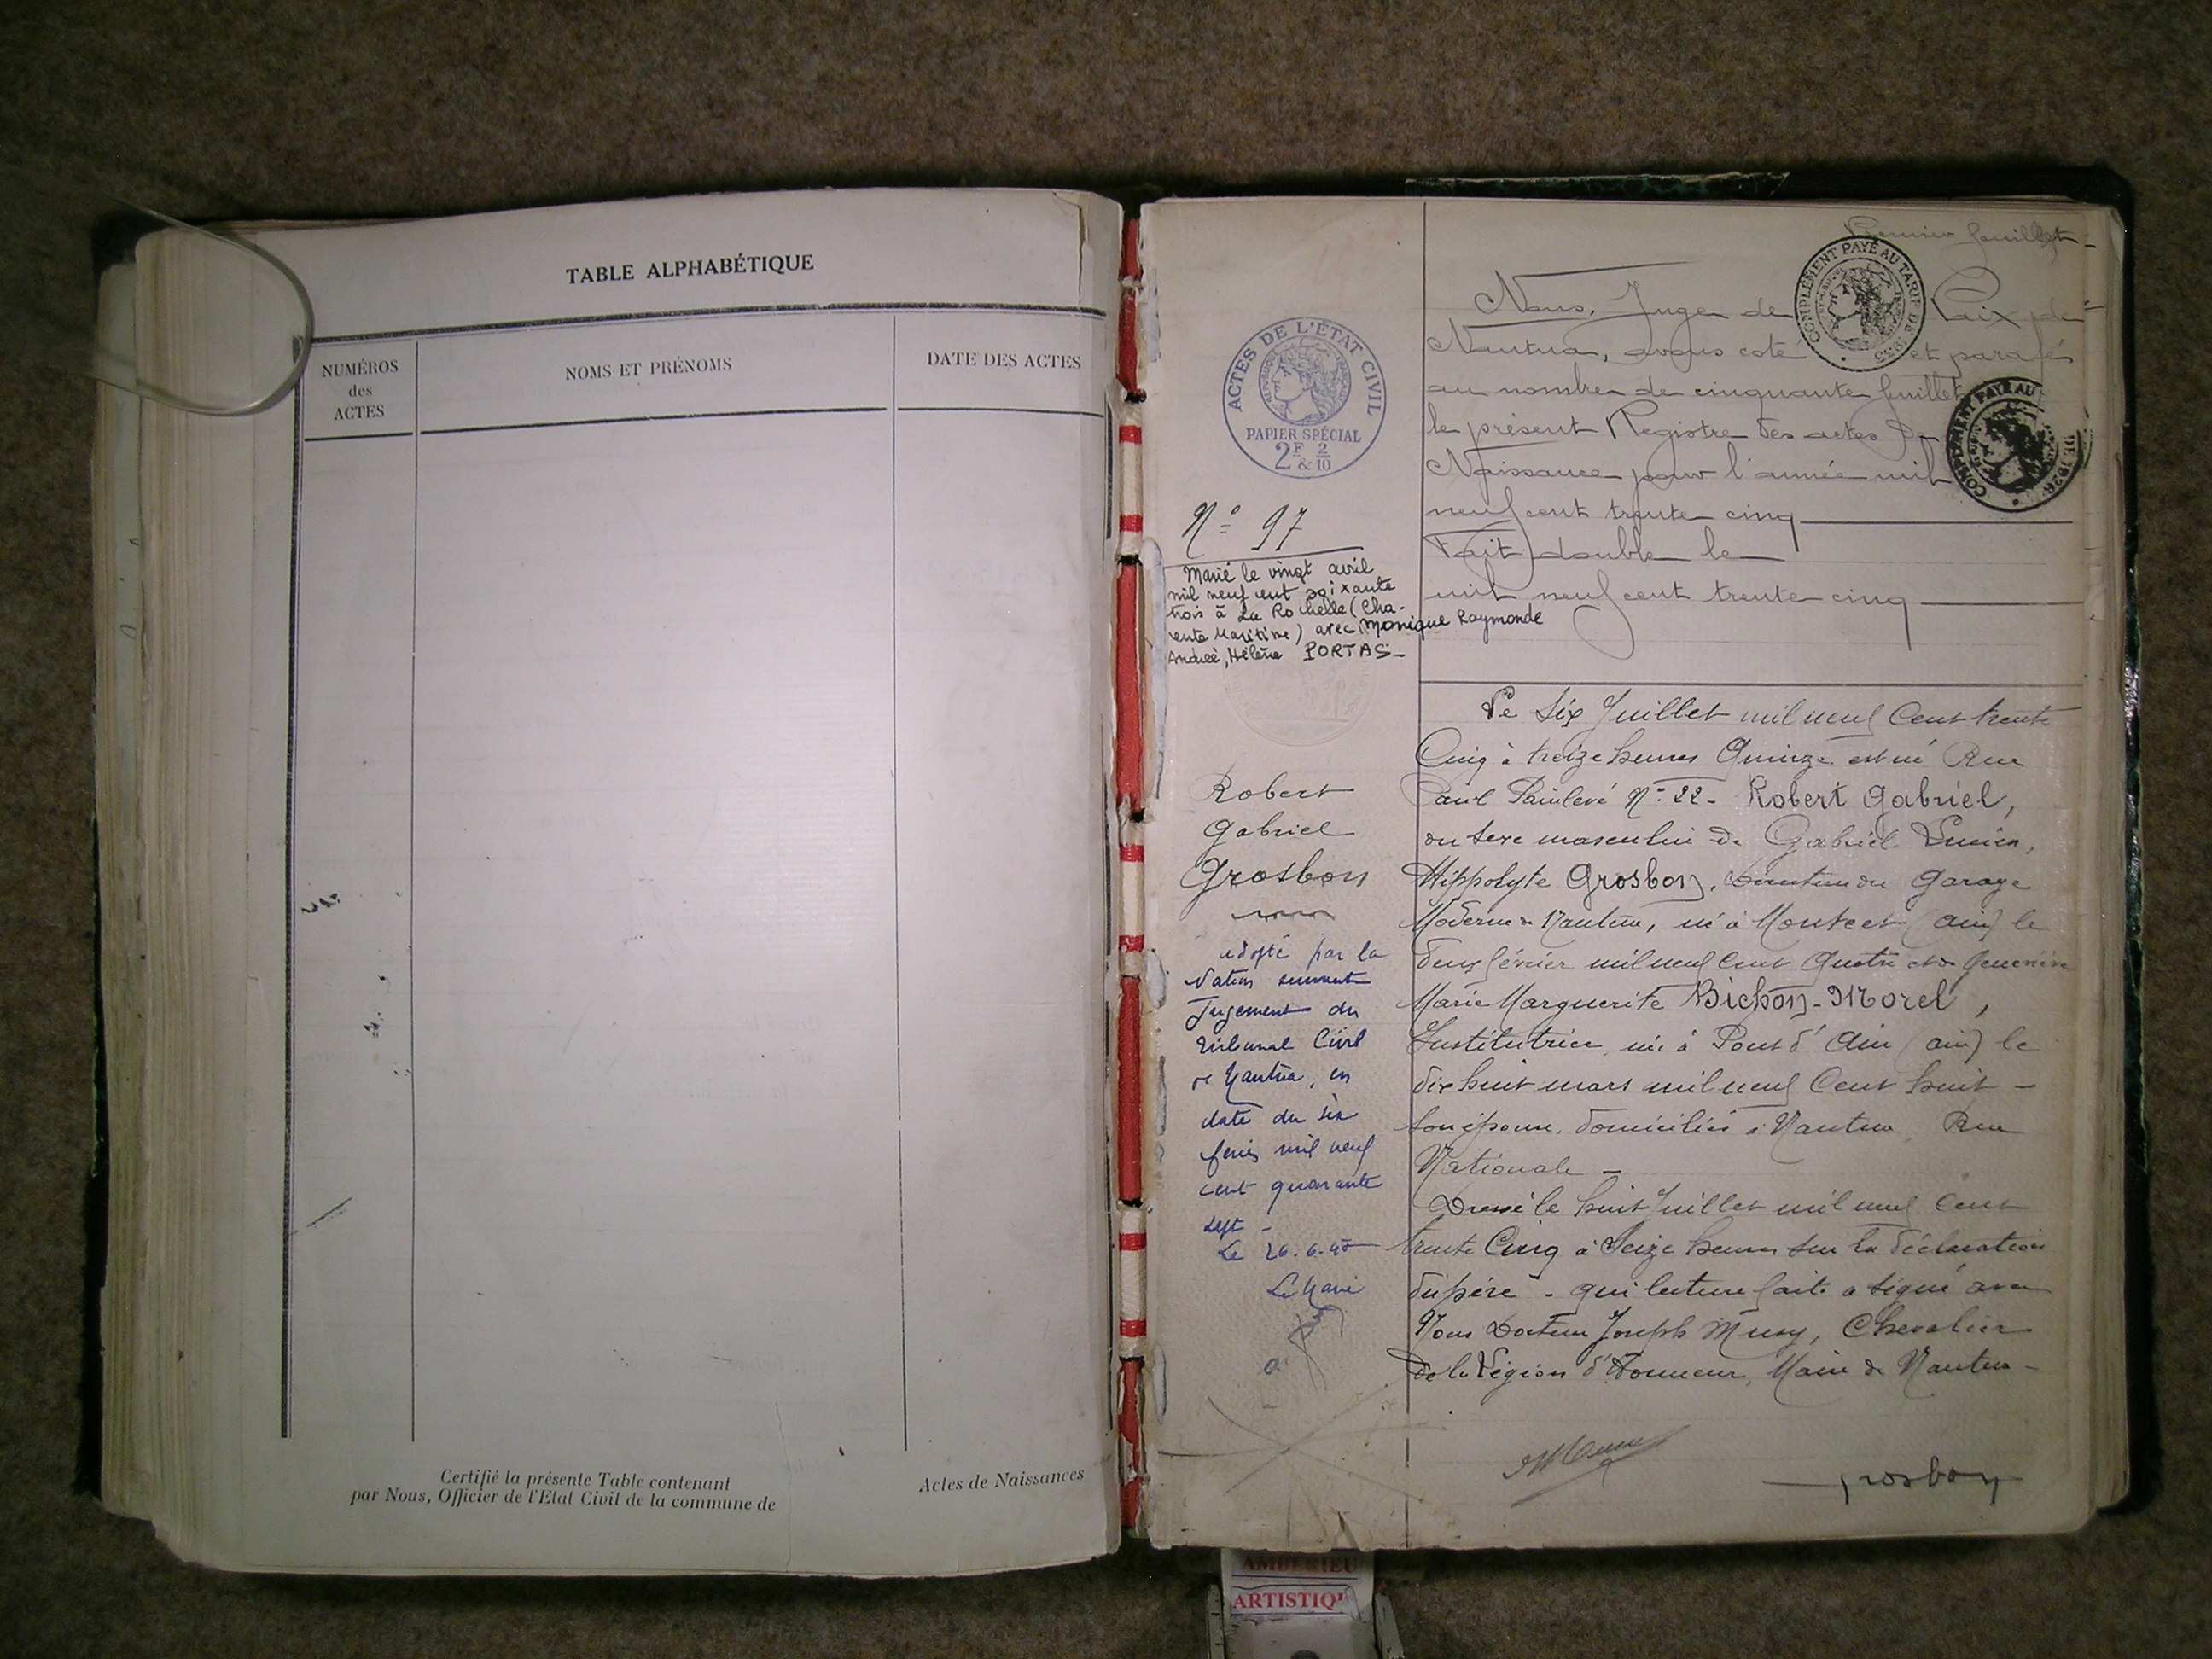 TABLE ALPHABÉTIQUE
NUMÉROS
des
ACTES
NOMS ET PRÉNOMS
DATE DES ACTES
Certifié la présente Table contenant
par Nous, Officier de l'Etat Civil de la commune de
Actes de Naissances
feuillet
COMPLÉMENT PAYÉ AU TARIF DE
ACTES DE L'ÉTAT CIVIL
PAPIER SPÉCIAL
2F & 2/10
Nous, Juge de Paix de
Nantua, avons coté et parafés
au nombre de cinquante feuillet
le présent Registre des actes de
Naissance pour l'année mil
neuf cent trente cinq
Fait double le
mil neuf cent trente cinq
COMPLÉMENT PAYÉ AU DE 1926
N° 97
Marié le vingt avril
mil neuf cent soixante
trois à La Rochelle (Cha-
rente Maritime) avec Monique Raymonde
Andreé, Hélène PORTAS
Robert
Gabriel
Grosbon
adopté par la
Nation suivant
Jugement du
Tribunal Civil
de Nantua, en
date du six
mil neuf
cent quarante
sept -
Le 26.6.
Le Maire
Le Six Juillet mil neuf Cent trente
Cinq à treize heures Quinze est né Rue
Paul Painlevé N° 22 - Robert Gabriel,
du sexe masculin de Gabriel Lucien,
Hippolyte Grosbon, Directeur du Garage
Moderne de Nantua, né à Montcet (Ain) le
deux février mil neuf Cent Quatre et de Geneviève
Marie Marguerite Bichon-Morel,
Institutrice, née à Pont d'Ain (Ain) le
dix huit mars mil neuf Cent huit -
son épouse, domiciliés à Nantua, Rue
Nationale -
Dressé le huit Juillet mil neuf Cent
trente Cinq à Seize heures sur la déclaration
du père - qui lecture faite a signé avec
Nous Docteur Joseph Mussy, Chevalier
de la Légion d'Honneur, Maire de Nantua -
Grosbon
AMBERIEU
ARTISTIQU